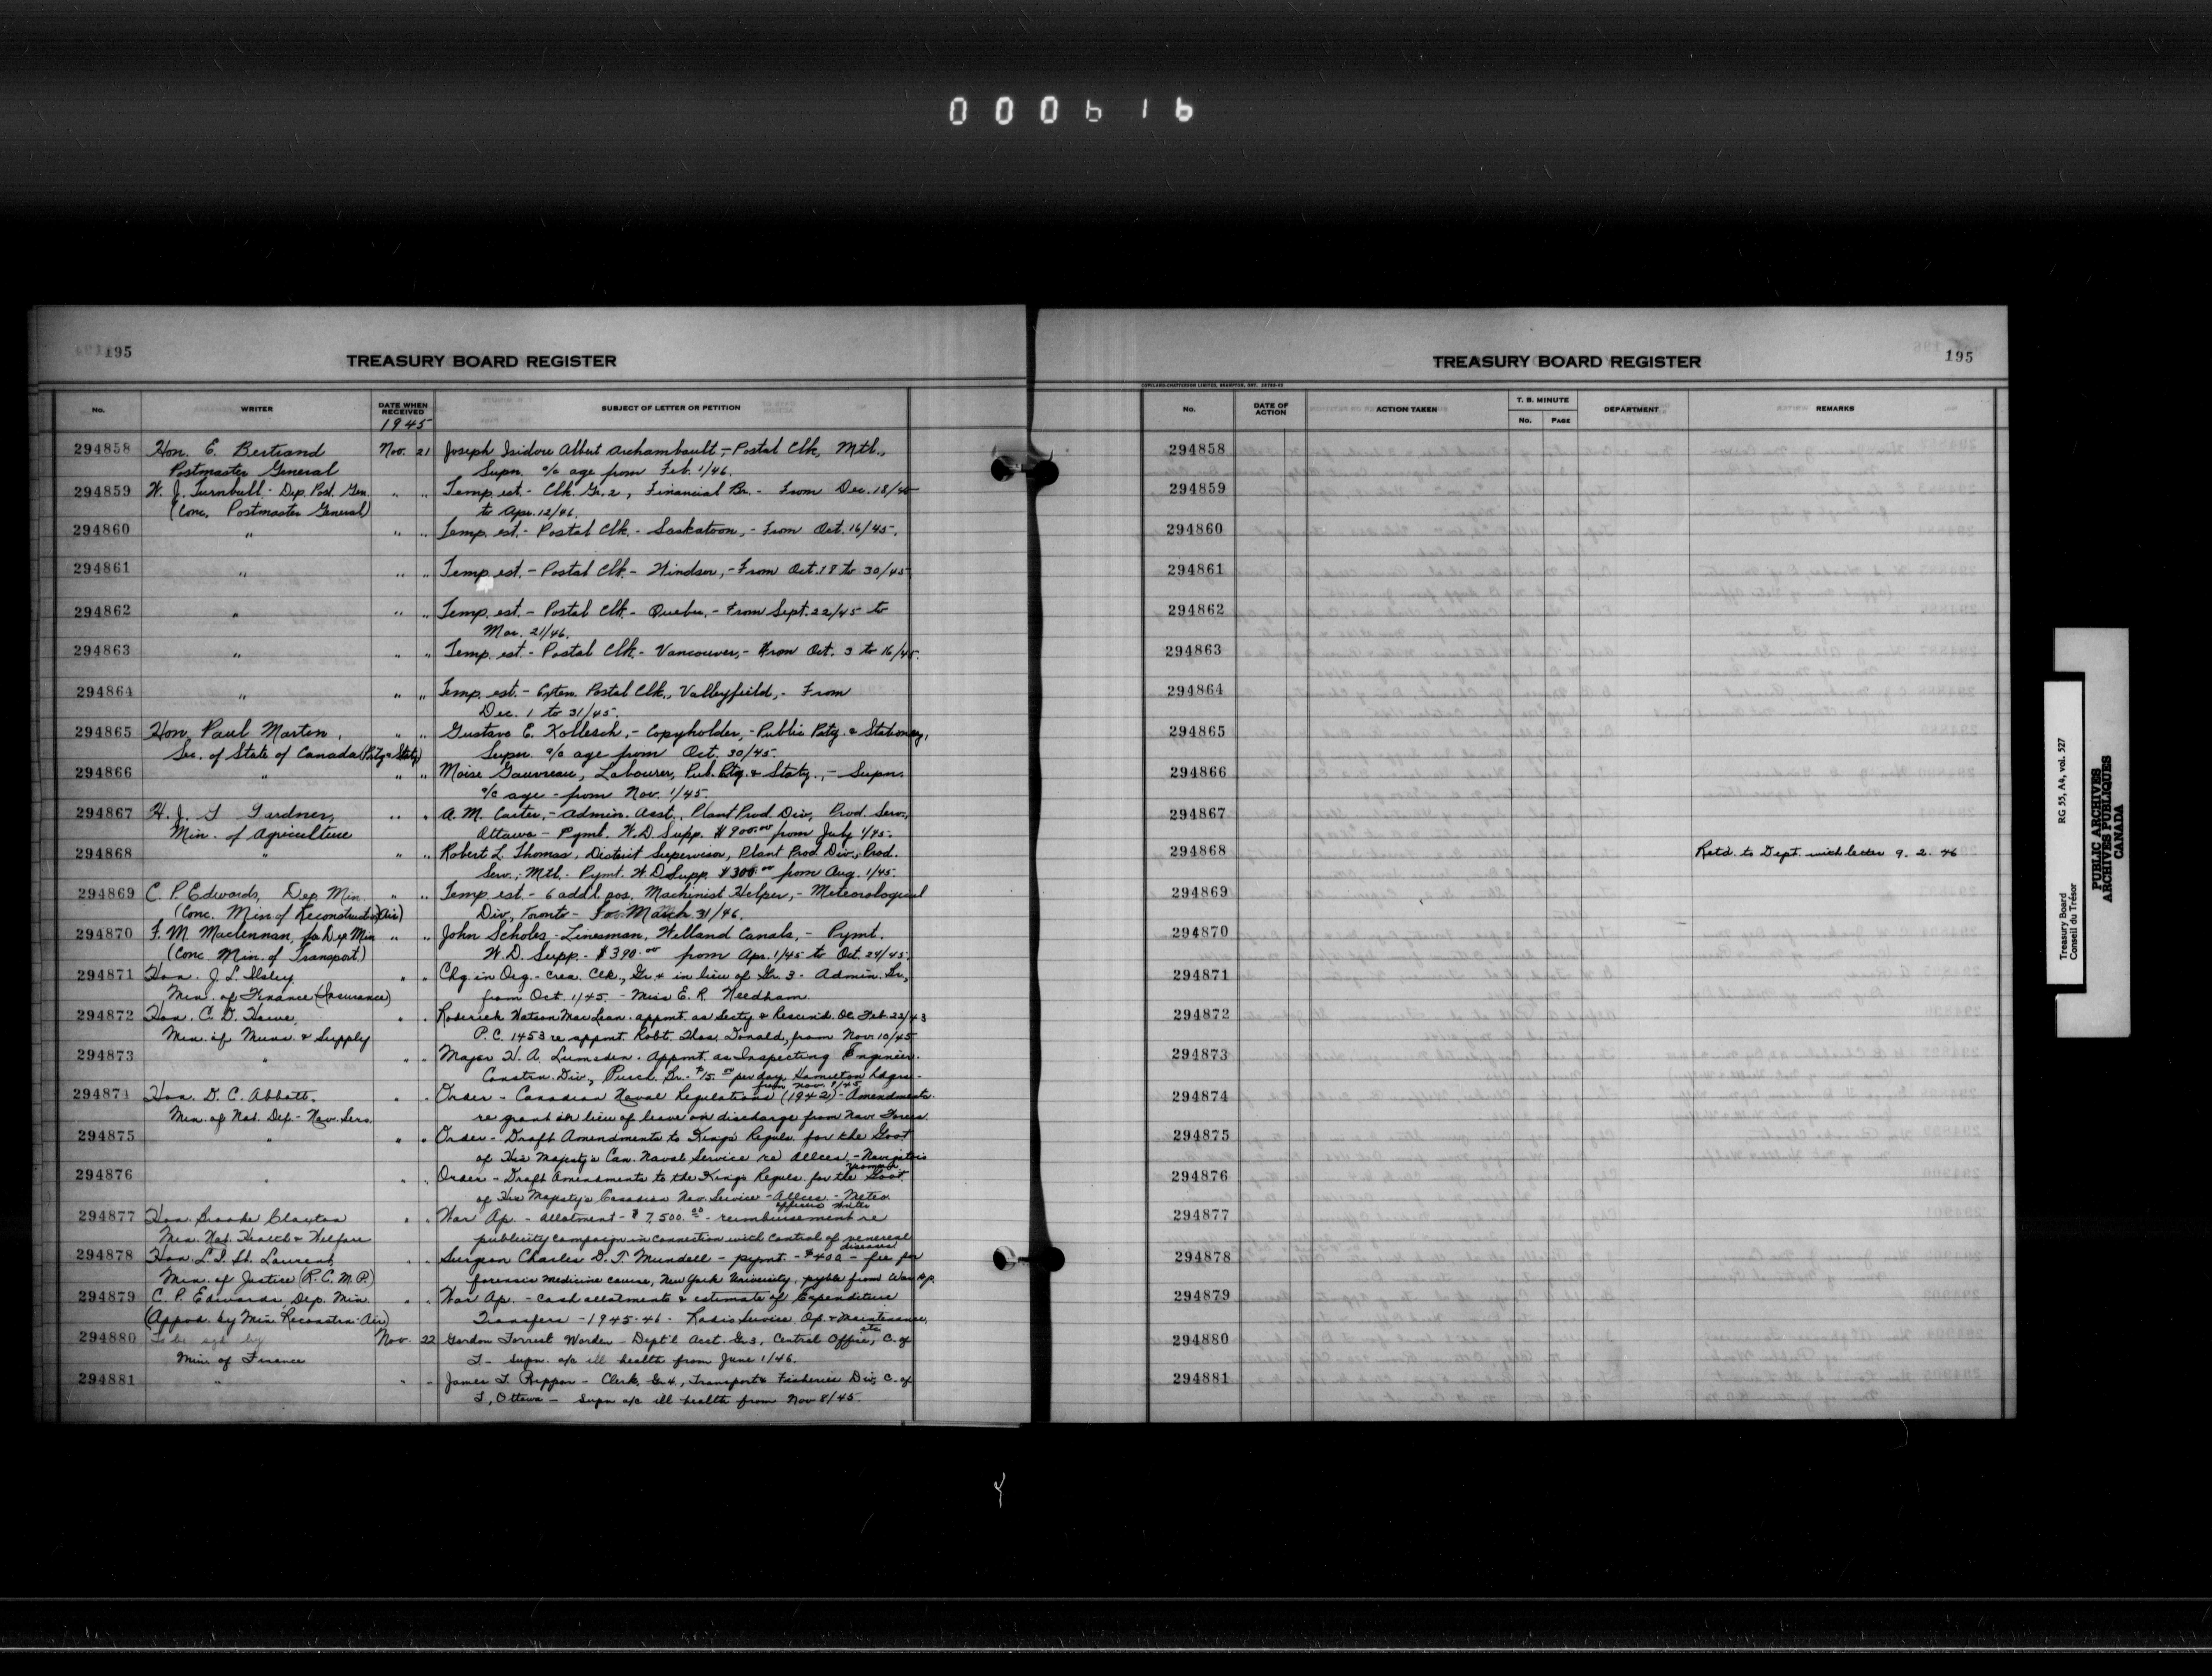 000616
195
TREASURY BOARD REGISTER
No. WRITER DATE WHEN RECEIVED SUBJECT OF LETTER OR PETITION
1945
294858 Hon. E. Bertrand Nov. 21 Joseph Isidore Albert Archambault, - Postal Clk, Mtl.,
Postmaster General Supn. a/c age from Feb. 1/46.
294859 W. J. Turnbull - Dep. Post. Gen. " " Temp. est. - Clk. Gr. 2, Financial Br. - From Dec. 18/45
(Conc. Postmaster General) to Apr. 12/46.
294860 " " " Temp. est. - Postal Clk. - Saskatoon, - From Oct. 16/45.
294861 " " " Temp. est. - Postal Clk. - Windsor, - From Oct. 18 to 30/45
294862 " " " Temp. est. - Postal Clk. - Quebec, - From Sept. 22/45 to
Mar. 21/46.
294863 " " " Temp. est. - Postal Clk. - Vancouver, - From Oct. 3 to 16/45.
294864 " " " Temp. est. - 6 xten. Postal Clk., Valleyfield, - From
Dec. 1 to 31/45.
294865 Hon. Paul Martin, " " Gustave E. Kollesch, - Copyholder, - Public Ptg. & Stationery,
Sec. of State of Canada (Ptg & Staty) Supn. a/c age from Oct. 30/45
294866 " " " Moise Gauvreau, Labourer, Pub. Ptg. & Staty., - Supn.
a/c age - from Nov. 1/45.
294867 H. J. S Gardner, " " A. M. Carter, - Admin. Asst., Plant Prod. Div., Prod. Serv.,
Min. of Agriculture Ottawa - Pymt. W.D. Supp. $900.00 from July 1/45.
294868 " " " Robert L. Thomas, District Supervisor, Plant Prod. Div., Prod.
Serv., Mtl. - Pymt. W.D. Supp. $300.00 from Aug. 1/45.
294869 C. P. Edwards, Dep Min. " " Temp est - 6 add'l pos. Machinist Helper, - Meteorological
(Conc. Min of Reconstruction (Air) Div, Toronto - To March 31/46.
294870 F. M. Maclennan, for Dep Min " " John Scholes - Linesman, Welland Canals, - Pymt.
(Conc. Min. of Transport.) W.D. Supp. - $390.00 from Apr. 1/45 to Oct. 24/45.
294871 Hon. J. L. Ilsley " " Chg. in Org. - Crea. Clk., Gr 4 in lieu of Gr. 3 - Admin. Br.,
Min. of Finance (Insurance) from Oct. 1/45. - Miss E. R. Needham
294872 Hon. C. D. Howe, " " Roderick Watson MacLean - appmt. as Secty & Rescind. OC Feb. 22/43
Min. of Muns. & Supply P.C. 1453 re appmt. Robt. Thos. Donald, from Nov. 10/45
294873 " " " Major H. A. Lumsden - Appmt. as Inspecting Engineer.
Constrn. Div., Purch. Br. - $15.00 per day, Hamilton hdqrs -
from Nov. 8/45
294874 Hon. D. C. Abbott. " " Order - Canadian Naval Regulations (1942) - Amendments.
Min. of Nat. Def. - Nav. Serv. re grant in lieu of leave on discharge from Nav. Forces.
294875 " " " Order - Draft Amendments to King's Reguls. for the Govt
of His Majesty's Can. Naval Service re Allces. - Navigators
yeoman
294876 " " " Order - Draft Amendments to the King's Reguls. for the Govt
of His Majesty's Canadian Nav. Service - Allces. - Meteo.
officers writer
294877 Hon. Brooke Claxton " " War Ap. - allotment - $7,500.00 - reimbursement re
Min. Nat. Health & Welfare publicity campaign in connection with control of venereal
diseases
294878 Hon. L. S. St. Laurent " " Surgeon Charles D. T. Mundell - pymt - $400 - fee for
Min. of Justice (R.C.M.P.) forensic medicine course, New York University, pyble from War Ap.
294879 C. P. Edwards, Dep. Min. " " War Ap. - cash allotments & estimate of Expenditure
(Appvd. by Min. Reconstrn - Air) Transfers - 1945-46 - Radio Service Op. & Maintenance,
etc.
294880 To be sgd by Nov. 22 Gordon Forrest Worden - Dept'l Acct. Gr. 3, Central Office, C. of
Min. of Finance T. - Supn. a/c ill health from June 1/46.
294881 " " " James T. Rippon - Clerk, Gr 4, Transport & Fisheries Div, C. of
T., Ottawa - Supn a/c ill health from Nov 8/45.
TREASURY BOARD REGISTER
195
COPELAND-CHATTERSON LIMITED, BRAMPTON, ONT.
No. DATE OF ACTION ACTION TAKEN T. B. MINUTE No. PAGE DEPARTMENT REMARKS
294858
294859
294860
294861
294862
294863
294864
294865
294866
294867
294868 Retd. to Dept. with letter 9. 2. 46
294869
294870
294871
294872
294873
294874
294875
294876
294877
294878
294879
294880
294881
Treasury Board RG 55, A4, vol. 527
Conseil du Trésor
PUBLIC ARCHIVES
ARCHIVES PUBLIQUES
CANADA